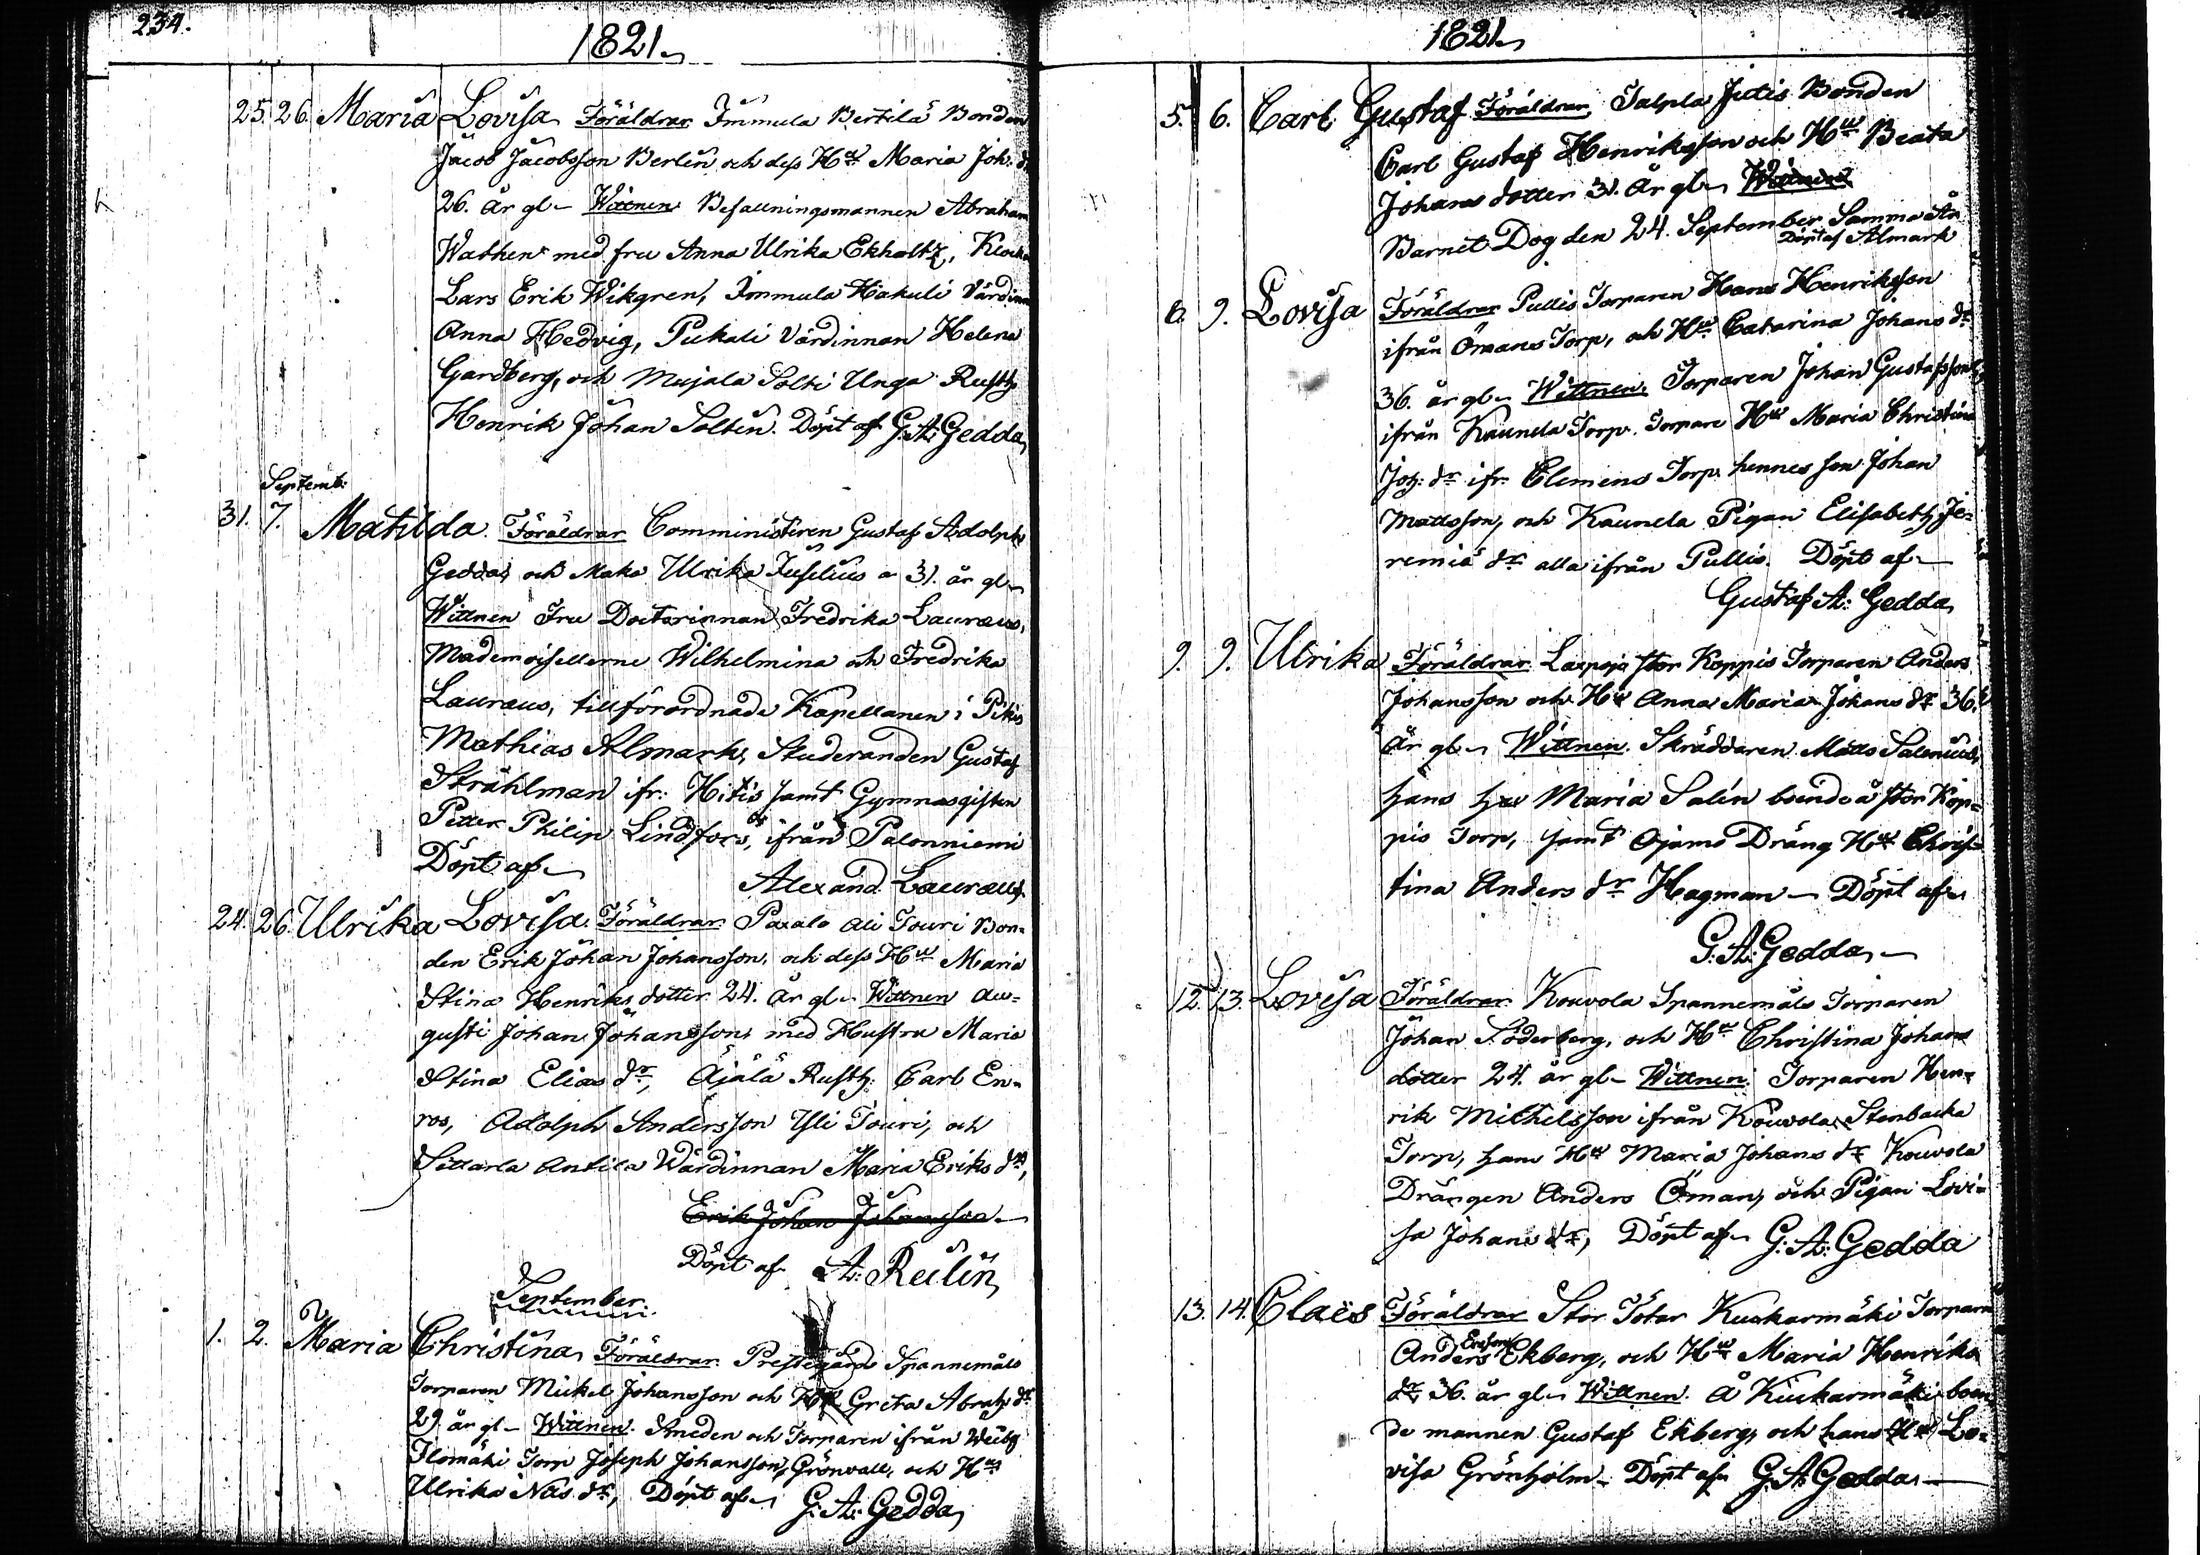 234.
1821.
25. 26. Maria Lovisa Föräldrar Immula Bertilä Bonden
Jacob Jacobsson Berlin och dess Hu Maria Joh. dr
26. år gl. Wittnen Befallningsmannen Abraham
Wathen med fru Anna Ulrika Ekholtz, Klocka
Lars Erik Wikgren, Immula Hakuli Värdinn
Anna Hedvig, Pukali Värdinnan Helena
Gardberg, och Mujala Solti Unga Rusth
Henrik Johan Soltin. Döpt af G. A. Gedda
Septemb:
31. 7. Matilda. Föräldrar Comministeren Gustaf Adolph
Gedda, och Maka Ulrika Juselius a 31. år gl.
Wittnen Fru Doctorinnan Fredrika Lauraeus,
Mademoisellerne Wilhelmina och Fredrika
Lauraeus, tillförordnade Kapellanen i Pikis
Mathias Almark, Studeranden Gustaf
Stråhlman ifr: Hitis samt Gymnasgisten
Petter Philip Lindfors, ifrån Palonniemi
Döpt af
Alexand. Lauraeus.
24. 26. Ulrika Lovisa. Föräldrar Paxalo Ali Touri Bon-
den Erik Johan Johansson, och dess Hu Maria
Stina Henriks dotter 24. år gl. Wittnen Au-
gusti Johan Johansson, med Hustru Maria
Stina Elias dr, Äjälä Rusth: Carl En-
ros, Adolph Andersson Yli Touri, och
Sittarla Antila Wärdinnan Maria Eriks dr,
Erik Johan Johansson
Döpt af A. Reilin
September.
1. 2. Maria Christina, Föräldrar Prestegårds Spannemåls
Torparen Mickel Johansson och Hu Greta Abrah. dr
29 år gl. Wittnen. Smeden och Torparen ifrån
Ilomäki Torp Joseph Johansson Grönvall, och Hu
Ulrika Nils dr, Döpt af G: A: Gedda,
1821.
5. 6. Carl Gustaf Föräldrar, Talpla Jutis Bonden
Carl Gustaf Henriksson och Hu Beata
Johans dotter 31. år gl. Wittnen
Barnet Dog den 24. September Samma År
Döpt af Almark
6. 9. Lovisa Föräldrar Pullis Torparen Hans Henriksson
ifrån Ömans Torp, och Hu Catarina Johans dr
36. år gl. Wittnen. Torparen Johan Gustafsson,
ifrån Kaunela Torp. Torpare Hu Maria Christina
Joh: dr ifr. Clemens Torp. hennes son Johan
Mattsson, och Kaunela Pigan Elisabeth Je-
remia dr alla ifrån Pullis. Döpt af
Gustaf A: Gedda,
9. 9. Ulrika Föräldrar stor Koppis Torparen Anders
Johansson och Hu Anna Maria Johans dr 36.
År gl. Wittnen. Skräddaren Matts Salenius,
hans hu Maria Salin boende å stor Kop-
pis Torp, samt Ojams Dräng Hu Chris-
tina Anders dr Hagman Döpt af
G. A. Gedda,
12. 13. Lovisa Föräldrar Kouvola Spannemåls Torparen
Johan Söderberg, och Hu Christina Johans
dotter 24. år gl. Wittnen: Torparen Hen-
rik Milhelsson ifrån Kouvola, Stenbacka
Torp, hans Hu Maria Johans dr Kouvola
Drängen Anders Öman, och Pigan Lovi-
sa Johans dr, Döpt af G: A: Gedda
13. 14. Claës Föräldrar Stor Totar Kuckarmäki Torparn
Anders Ersson Ekberg, och Hu Maria Henriks
dr 36. år gl. Wittnen. Å Kuckarmäki boen
de mannen Gustaf Ekberg, och hans Hu Lo-
visa Grönholm. Döpt af G. A. Gedda.